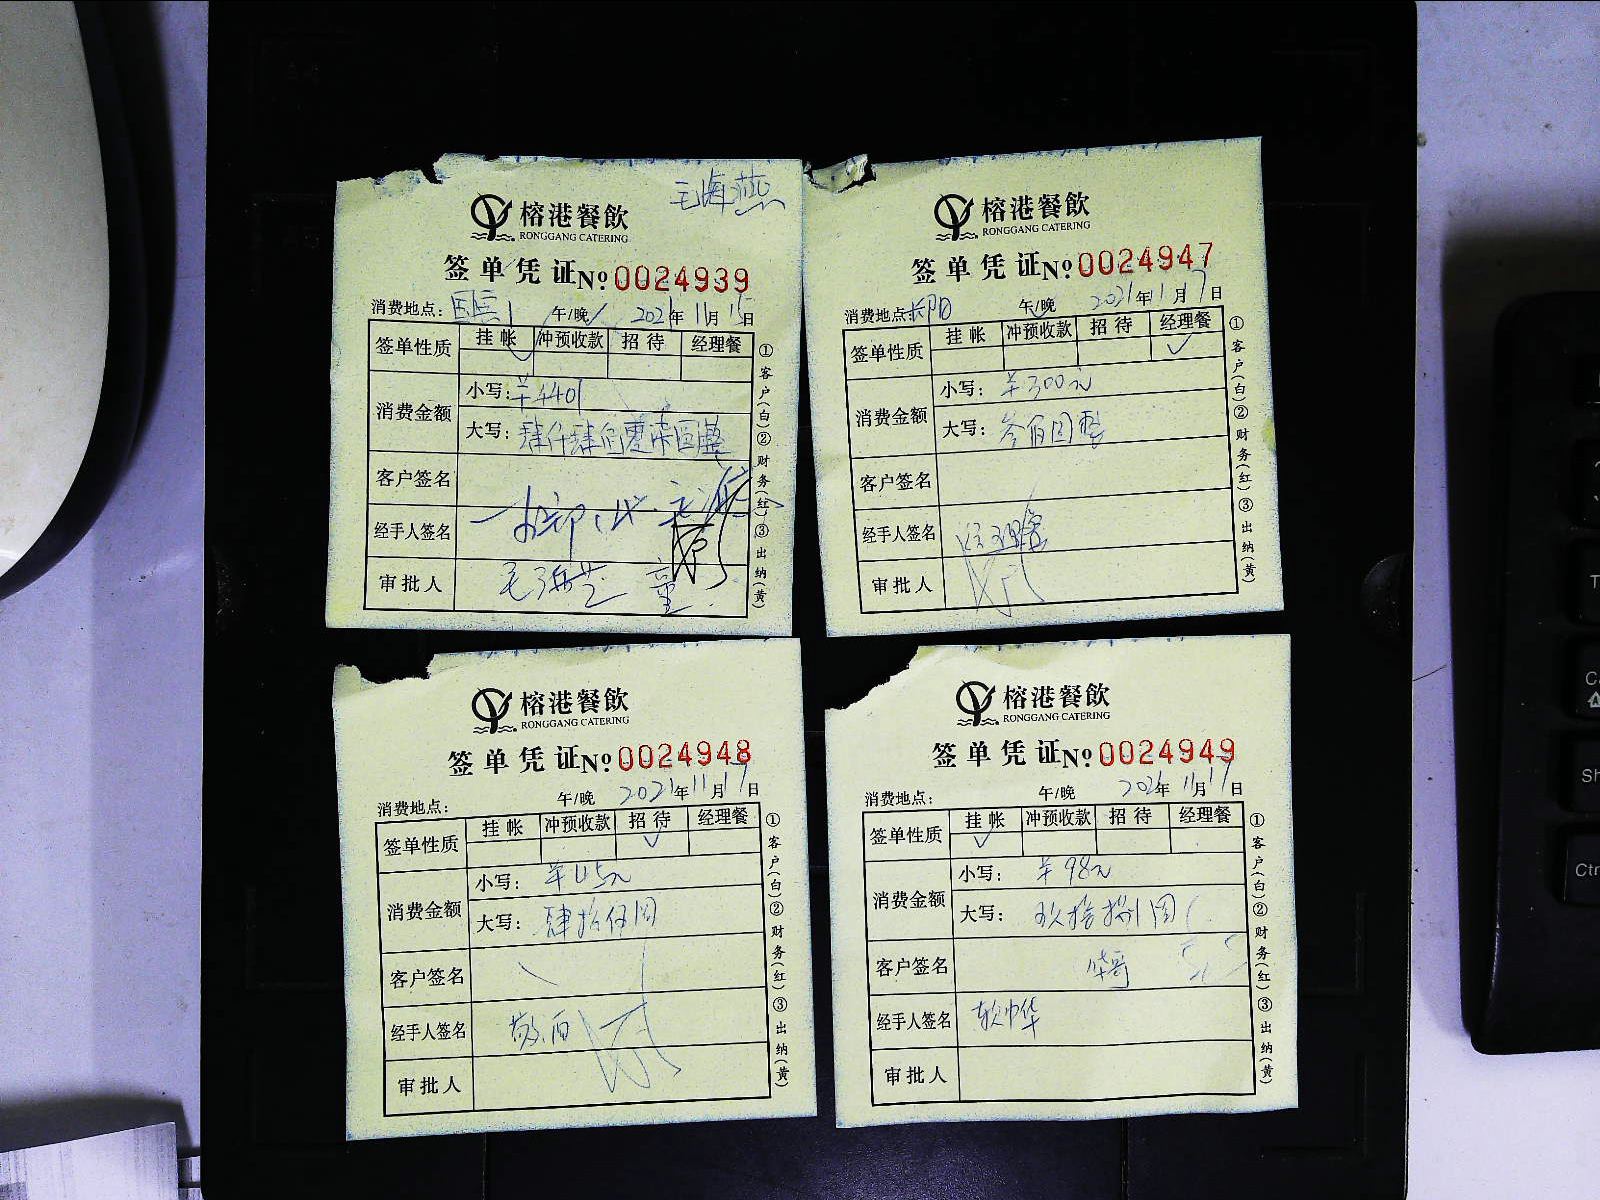 毛海燕
榕港餐飲
RONGGANG CATERING
签单凭证 No 0024939
消费地点: 午/晚 2021年11月15日
签单性质 挂帐 冲预收款 招待 经理餐
消费金额 小写: ¥4401
大写: 肆仟肆佰零
客户签名
经手人签名
审批人 童
①客户(白)②财务(红)③出纳(黄)
榕港餐飲
RONGGANG CATERING
签单凭证 No 0024947
消费地点: 午/晚 2021年11月17日
签单性质 挂帐 冲预收款 招待 经理餐
消费金额 小写: ¥300元
大写: 叁佰圆整
客户签名
经手人签名
审批人
①客户(白)②财务(红)③出纳(黄)
榕港餐飲
RONGGANG CATERING
签单凭证 No 0024948
消费地点: 午/晚 2021年11月17日
签单性质 挂帐 冲预收款 招待 经理餐
消费金额 小写: ¥45元
大写: 肆拾伍圆
客户签名
经手人签名
审批人
①客户(白)②财务(红)③出纳(黄)
榕港餐飲
RONGGANG CATERING
签单凭证 No 0024949
消费地点: 午/晚 2021年11月17日
签单性质 挂帐 冲预收款 招待 经理餐
消费金额 小写: ¥98元
大写: 玖拾捌圆
客户签名 华哥
经手人签名
审批人
①客户(白)②财务(红)③出纳(黄)